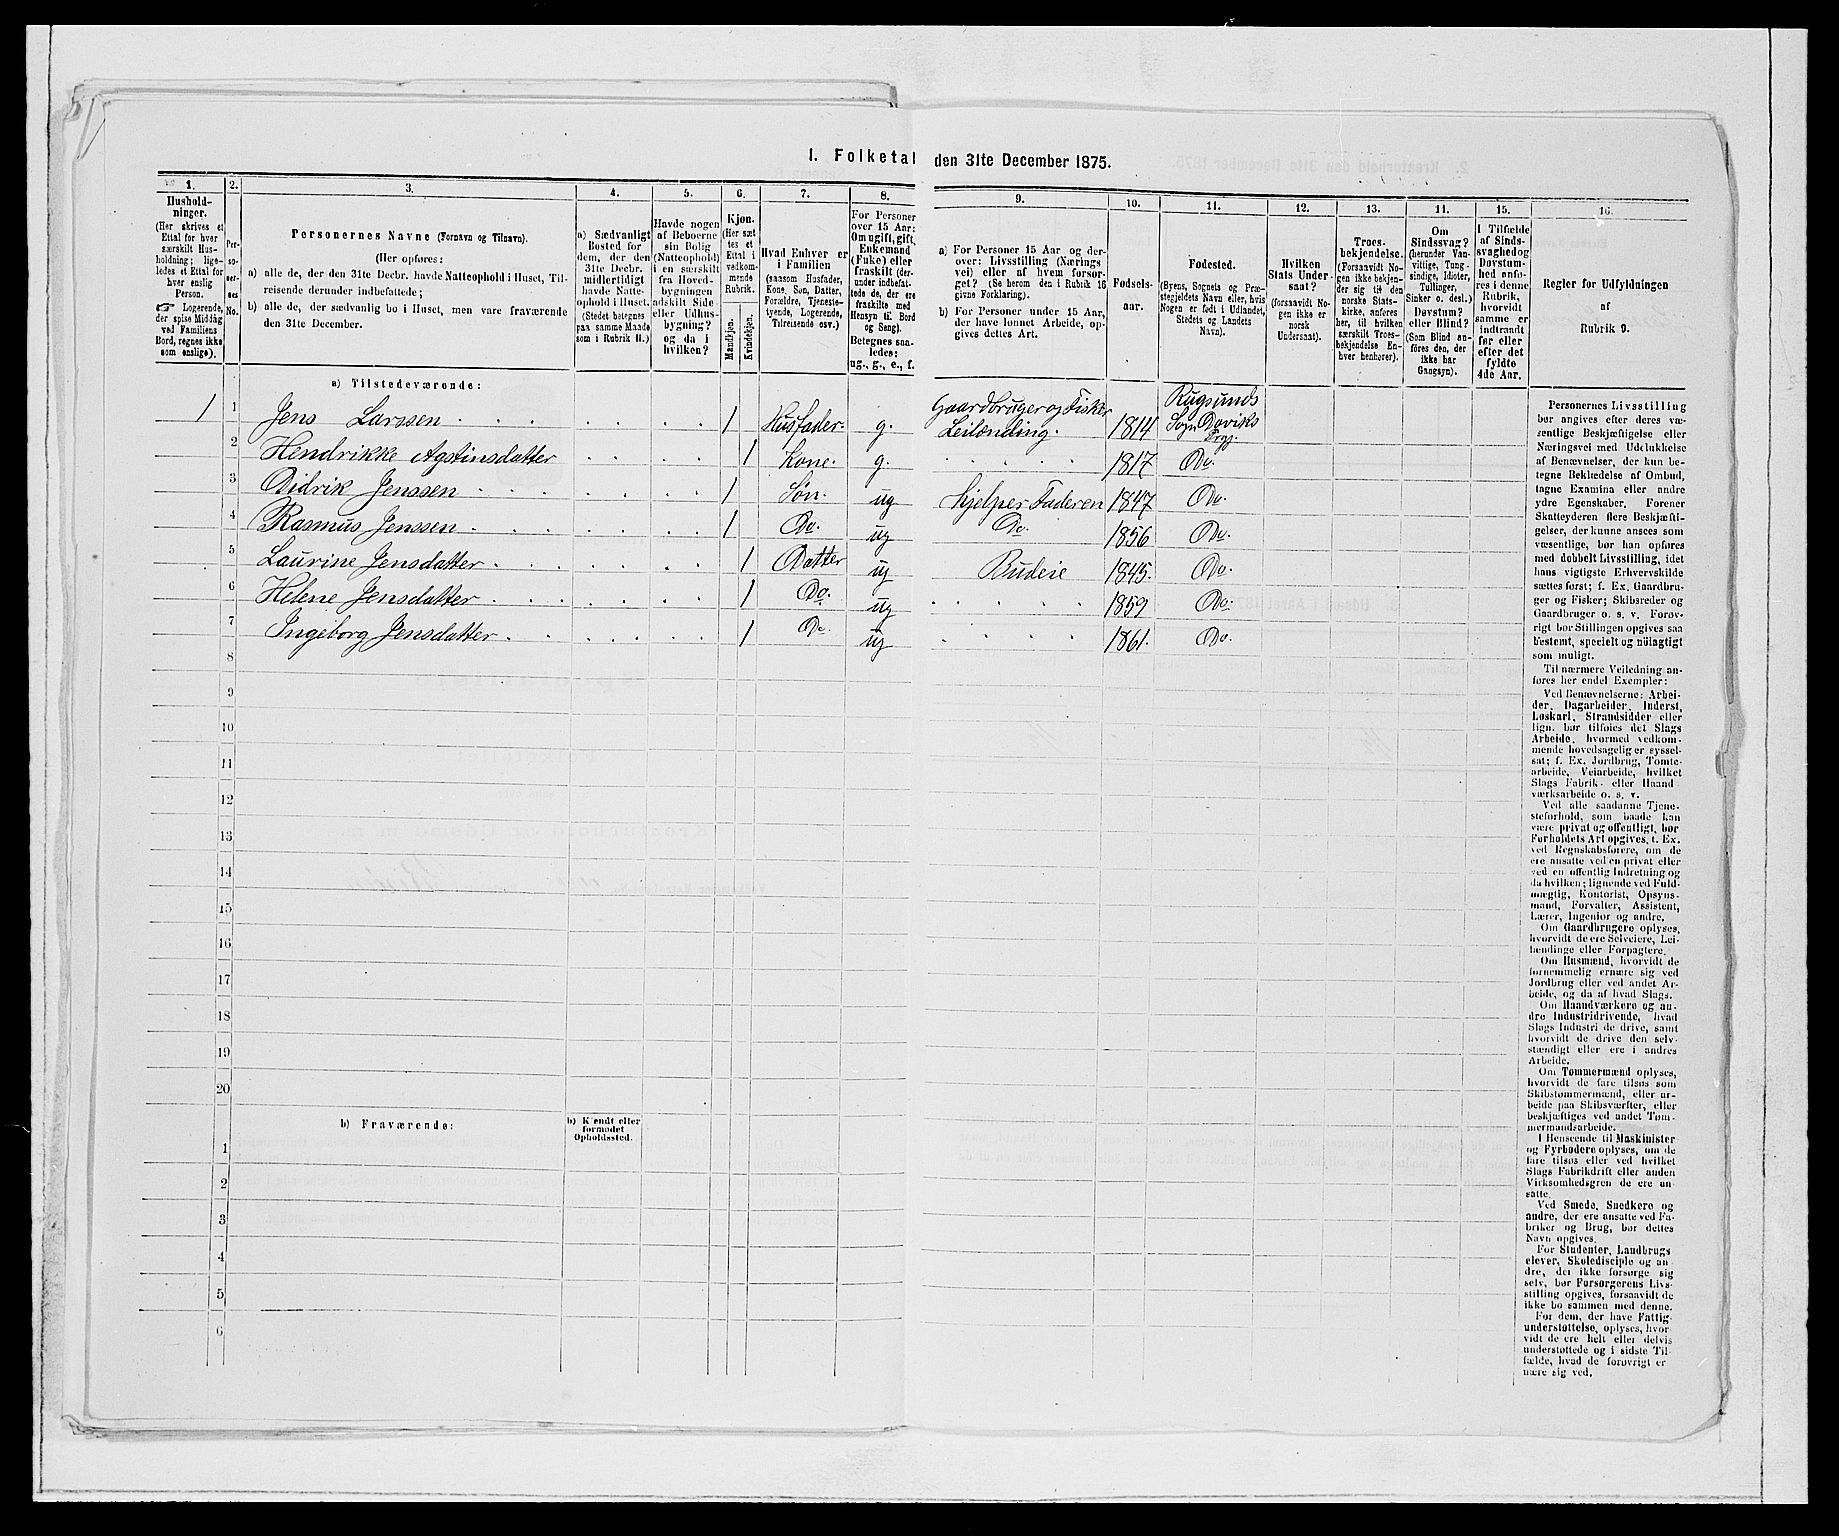 I. Folketal den 31te December 1875.
1. 2. 3. 4. 5. 6. 7. 8. 9. 10. 11. 12. 13. 14. 15. 16.
Hushold-
ninger.
(Her skrives et
Ettal for hver
særskilt Hus-
holdning; lige-
ledes et Ettal for
hver enslig
Person.
☞ Logerende,
der spise Middag
ved Familiens
Bord, regnes ikke
som enslige).
Per-
so-
ner-
nes
No.
Personernes Navne (Fornavn og Tilnavn).
(Her opføres:
a) alle de, der den 31te Decbr. havde Natteophold i Huset, Til-
reisende derunder indbefattede;
b) alle de, der sædvanlig bo i Huset, men vare fraværende
den 31te December.
a) Sædvanligt
Bosted for
dem, der den
31te Decbr.
midlertidigt
havde Natte-
ophold i Huset.
(Stedet betegnes
paa samme Maade
som i Rubrik 11.)
Havde nogen
af Beboerne
sin Bolig
(Natteophold)
i en særskilt
fra Hoved-
bygningen
adskilt Side-
eller Udhus-
bygning?
og da i
hvilken?
Kjøn.
(Her sæt-
tes et
Ettal i
vedkom-
mende
Rubrik.
Mandkjøn.
Kvindekjøn.
Hvad Enhver er
i Familien
(saasom Husfader,
Kone, Søn, Datter,
Forældre, Tjeneste-
tyende, Logerende,
Tilreisende osv.)
For Personer
over 15 Aar:
Om ugift, gift,
Enkemand
(Enke) eller
fraskilt (der-
under indbefat-
tede de, der ere
fraskilte med
Hensyn til Bord
og Seng).
Betegnes saa-
ledes:
ug., g., e., f.
a) For Personer 15 Aar og der-
over: Livsstilling (Nærings-
vei) eller af hvem forsør-
get? (Se herom den i Rubrik 16
givne Forklaring).
b) For Personer under 15 Aar,
der have lønnet Arbeide, op-
gives dettes Art.
Fødsels-
aar.
Fødested.
(Byens, Sognets og Præ-
stegjeldets Navn eller, hvis
Nogen er født i Udlandet,
Stedets og Landets
Navn).
Hvilken
Stats Under-
saat?
(forsaavidt No-
gen ikke er
norsk
Undersaat).
Troes-
bekjendelse.
(Forsaavidt No-
gen ikke bekjen-
der sig til den
norske Stats-
kirke, anføres
her, til hvilken
særskilt Troes-
bekjendelse En-
hver henhører).
Om
Sindssvag?
(herunder Van-
vittige, Tung-
sindige, Idioter,
Tullinger,
Sinker o. desl.)
Døvstum?
eller Blind?
(Som Blind an-
føres den, der
ikke har
Gangsyn).
I Tilfælde
af Sinds-
svaghed og
Døvstum-
hed anfø-
res i denne
Rubrik,
hvorvidt
samme er
indtraadt
før eller
efter det
fyldte
4de Aar.
Regler for Udfyldningen
af
Rubrik 9.
a) Tilstedeværende:
1 1 Jens Larssen 1 Husfader g. Gaardbruger og Fisker Leilænding. 1814 Rugsunds Sogn Daviks Prgj.
2 Hendrikke Agstinsdatter 1 Kone. g. 1817 Do.
3 Didrik Jenssen 1 Søn. ug Hjelper Faderen 1847 Do.
4 Rasmus Jenssen 1 Do. ug Do. 1856 Do.
5 Laurine Jensdatter 1 Datter ug Budeie 1845. Do.
6 Helene Jensdatter 1 Do. ug 1859 Do.
7 Ingeborg Jensdatter 1 Do. ug 1861. Do.
8
9
10
11
12
13
14
15
16
17
18
19
20
b) Fraværende:
b) Kjendt eller
formodet
Opholdssted.
1
2
3
4
5
6
Personernes Livsstilling
bør angives efter deres væ-
sentlige Beskjæftigelse eller
Næringsvei med Udelukkelse
af Benævnelser, der kun be-
tegne Beklædelse af Ombud,
tagne Examina eller andre
ydre Egenskaber. Forener
Skatteyderen flere Beskjæfti-
gelser, der kunne ansees som
væsentlige, bør han opføres
med dobbelt Livsstilling, idet
hans vigtigste Erhvervskilde
sættes først; f. Ex. Gaardbru-
ger og Fisker; Skibsreder og
Gaardbruger o. s. v. Forøv-
rigt bør Stillingen opgives saa
bestemt, specielt og nøiagtigt
som muligt.
Til nærmere Veiledning an-
føres her endel Exempler:
Ved Benævnelserne: Arbei-
der, Dagarbeider, Inderst,
Løskarl, Strandsidder eller
lign. bør tilføies det Slags
Arbeide, hvormed vedkom-
mende hovedsagelig er syssel-
sat; f. Ex. Jordbrug, Tomte-
arbeide, Veiarbeide, hvilket
Slags Fabrik- eller Haand-
værksarbeide o. s. v.
Ved alle saadanne Tjene-
steforhold, som baade kan
være privat og offentligt, bør
Forholdets Art opgives, t. Ex.
ved Regnskabsførere, om de
ere ansatte ved en privat eller
ved en offentlig Indretning og
da hvilken; lignende ved Fuld-
mægtig, Kontorist, Opsyns-
mand, Forvalter, Assistent,
Lærer, Ingeniør og andre.
Om Gaardbrugere oplyses,
hvorvidt de ere Selveiere, Lei-
lændinge eller Forpagtere.
Om Husmænd, hvorvidt de
fornemmelig ernære sig ved
Jordbrug eller ved andet Ar-
beide, og da af hvad Slags.
Om Haandværkere og an-
dre Industridrivende, hvad
Slags Industri de drive, samt
hvorvidt de drive den selv-
stændigt eller ere i andres
Arbeide.
Om Tømmermænd oplyses,
hvorvidt de fare tilsøs som
Skibstømmermænd, eller ar-
beide paa Skibsværfter, eller
beskjæftiges ved andet Tøm-
mermandsarbeide.
I Henseende til Maskinister
og Fyrbødere oplyses, om de
fare tilsøs eller ved hvilket
Slags Fabrikdrift eller anden
Virksomhedsgren de ere an-
satte.
Ved Smede, Snedkere og
andre, der ere ansatte ved Fa-
briker og Brug, bør dettes
Navn opgives.
For Studenter, Landbrugs-
elever, Skoledisciple og an-
dre, der ikke forsørge sig
selv, bør Forsørgerens Livs-
stilling opgives, forsaavidt de
ikke bo sammen med denne.
For dem, der have Fattig-
understøttelse, oplyses, hvor-
vidt de ere helt eller delvis
understøttede og i sidste Til-
fælde, hvad de forøvrigt er-
nære sig ved.